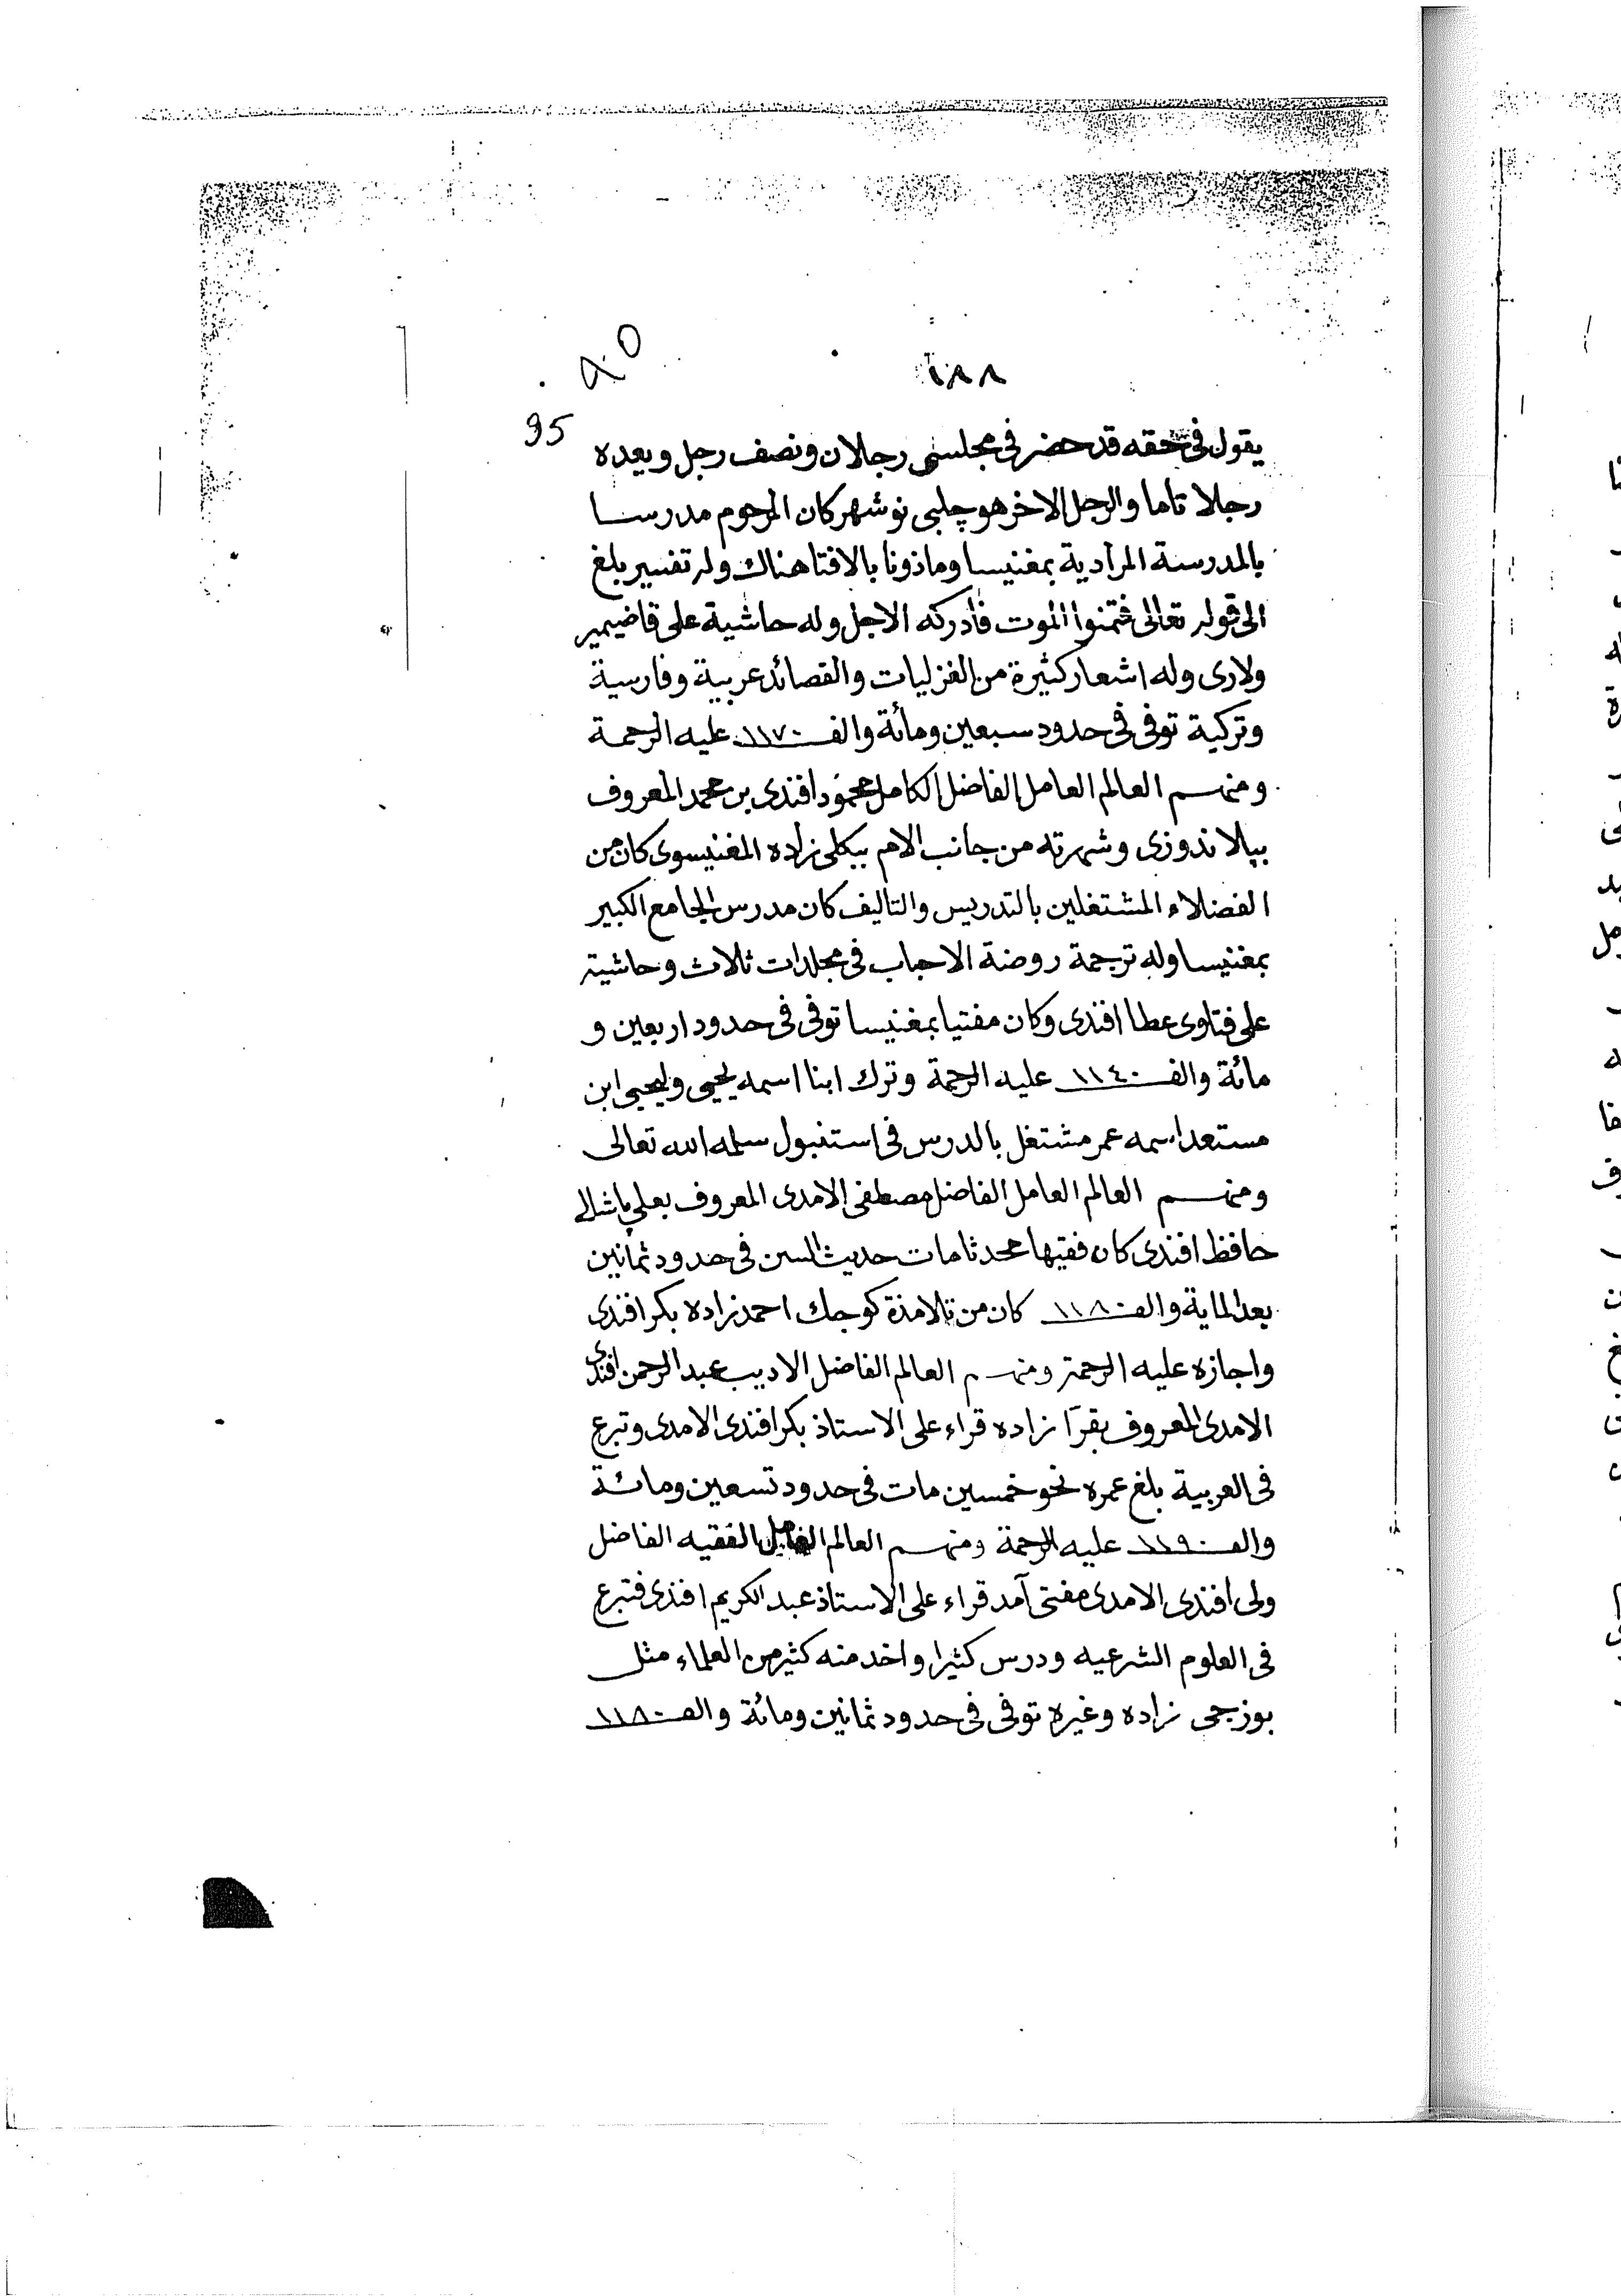 ١٨٨
٩٥
95
يقول فى حقه قد حضر فى مجلسى رجلان ونصف رجل ويعده
رجلا تاما والرجل الاخر هو چلبى نوشهر كان المرحوم مدرسا
بالمدرسة المرادية بمغنيسا وماذونا بالافتا هناك وله تفسير بلغ
الى قوله تعالى فتمنوا الموت فأدركه الاجل وله حاشية على قاضيمير
ولارى وله اشعار كثيرة من الغزليات والقصائد عربية وفارسية
وتركية توفى فى حدود سبعين ومائة والف ١١٧٠ عليه الرحمة
ومنهم العالم العامل الفاضل الكامل محمود افندى بن محمد المعروف
بپلاندوزى وشهرته من جانب الام ببكلى زاده المغنيسوى كان من
الفضلاء المشتغلين بالتدريس والتاليف كان مدرس الجامع الكبير
بمغنيسا وله ترجمة روضة الاحباب فى مجلدات ثلاث وحاشية
على فتاوى عطا افندى وكان مفتيا بمغنيسا توفى فى حدود اربعين و
مائة والف ١١٤٠ عليه الرحمة وترك ابنا اسمه يحيى وليحيى ابن
مستعد اسمه عمر مشتغل بالدرس فى استنبول سلمه الله تعالى
ومنهم العالم العامل الفاضل مصطفى الامدى المعروف بعلي پاشالى
حافظ افندى كان فقيها محدثا مات حديث السن فى حدود ثمانين
بعد الماية والف ١١٨٠ كان من تلامذة كوجك احمد زاده بكر افندى
واجازه عليه الرحمة ومنهم العالم الفاضل الاديب عبد الرحمن افندى
الامدى المعروف بقرا زاده قراء على الاستاذ بكر افندى الامدى وتبرع
فى العربية بلغ عمره نحو خمسين مات فى حدود تسعين ومائة
والف ١١٩٠ عليه الرحمة ومنهم العالم العامل الفقيه الفاضل
ولى افندى الامدى مفتى آمد قراء على الاستاذ عبد الكريم افندى فتبرع
فى العلوم الشرعيه ودرس كثيرا واخد منه كثير من العلماء مثل
بوزجى زاده وغيره توفى فى حدود ثمانين ومائة والف ١١٨٠